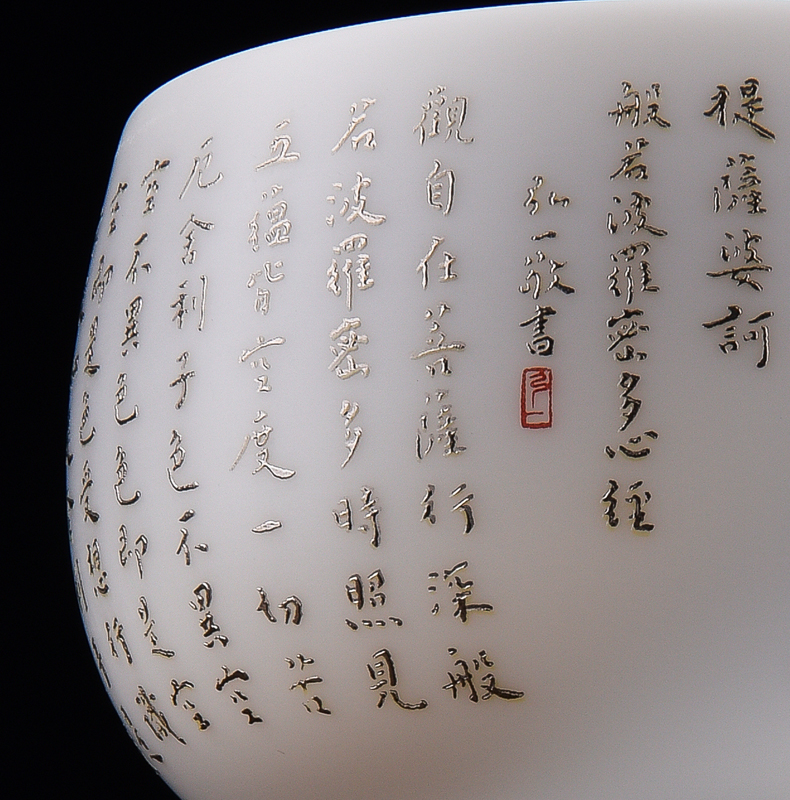 提薩婆訶
般若波羅密多心經
弘一敬書
觀自在菩薩行深般
若波羅密多時照見
五蘊皆空度一切苦
厄舍利子色不異空
空不異色色即是空
空即是色受想行識